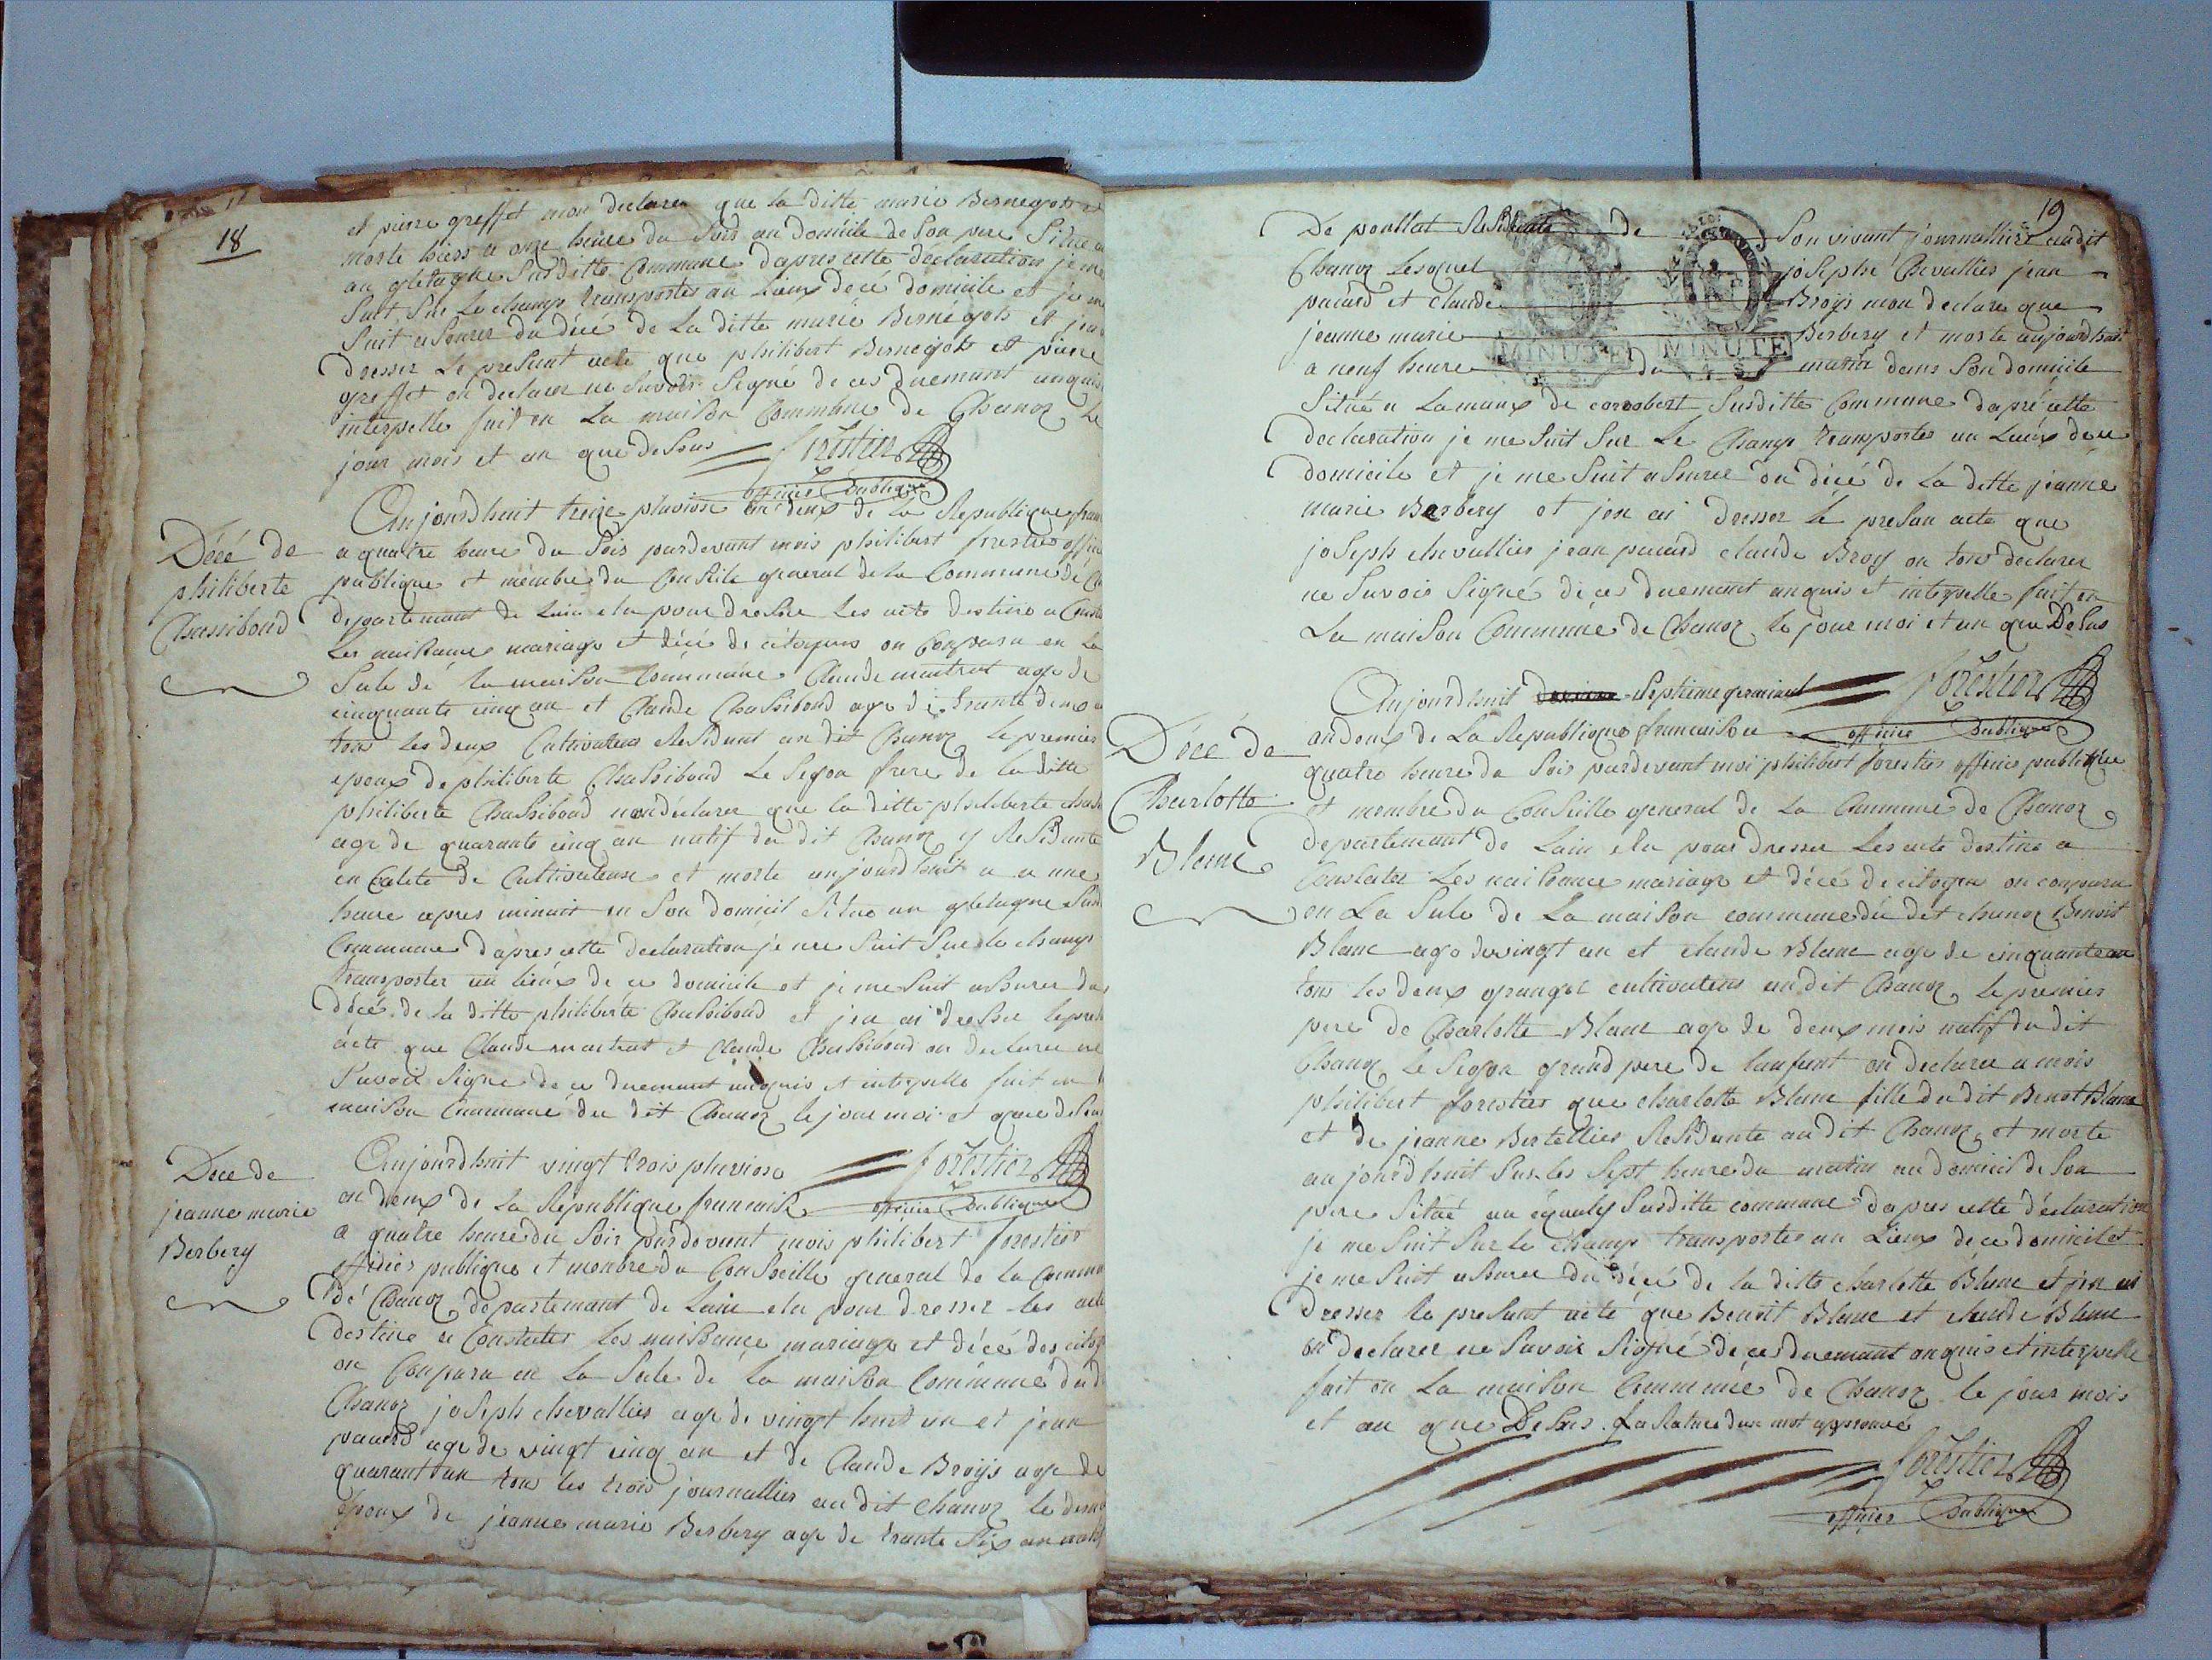 18
et pierre greffet mon declarer que la ditte marie Bernegot et
morte hiers a onze heure du soir au domicile de son pere situe a
au gletagne susditte Commune dapres cette declaration je me
suit sur le champ transporter au lieux de ce domicile et je me
suit asurer du décé de la ditte marie Bernégot et jen
dresser le present acte que philibert Bernegot et pierre
greffet on declarer ne savoir signé de ces duemant anquis
interpelle fait en la maison Commune de Chanoz le
jour mois et an que desus
forestier
officier publique
Décé de
philiberte
Chassiboud
Aujourdhuit treize pluviose an deux de la Republique fran
a quatre heure du soir pardevant mois philibert forestier offi
publique et membre du Conseile general de la Commune de C
departemant de Lain elu pour dresser les acte destiné a Const
les naissance mariage et décé de citoyens on Conparu en la
Sale dé la maison Commune Claude montrat age de
cinquante cinq an et Claude Chassiboud age de trante deux a
tous les deux Cultivateur Residant au dit Chanoz le premier
epoux de philiberte Chassiboud le segon frere de la ditte
philiberte Chassiboud mondéclarer que la ditte philiberte chas
age de quarante cinq an natif du dit Chanoz y Residante
en Calité de Cultivateuse et morte aujourdhuit a une
heure apres minuit en son domicil situé au gletagne sus
Commune dapres cette declaration je me suit sur le champ
transporter au lieux de ce domicile et je me suit assurer du
décé de la ditte philiberte Chassiboud et jen ai dresser le pres
acte que Claude montrat et Claude Chassiboud on declarer ne
savoir signe de ce duemant anquis et interpelle fait en l
maison Commune du dit Chanoz le jour moi et que desus
Décé de
jeanne marie
Berbery
Aujourdhuit vingt trois pluviose
forestier
an deux de la République francaise
officier publique
a quatre heure du soir pardevant mois philibert forestier
officier publique et membre du Conseille general de la Commu
dé Chanoz departemant de Lain elu pour dresser les acte
destiné a Constater les naissance mariage et décé des cito
on Conparu en la Sale dé la maison Commune du d
Chanoz joseph chevallier age de vingt huit an et jean
pacard age de vingt cinq an et de Claude Broys age de
quarant an tous les trois journallier au dit chanoz le derni
epoux de jeanne marie Berbery age de trante six an natif
19
De poullat Residante de son vivant journalliere audit
Chanoz lesquel joseph Chevallier jean
pacard et claude Broys mon declare que
jeanne marie Berbery et morte aujourdhuit
a neuf heure du matin dans son domicile
MINUTE
MINUTE
Situé a Lamaux de corrobert susditte Commune dapré cette
declaration je me suit sur le Champ transporter au Lieux de ce
domicile et je me suit assurer du décé de la ditte jeanne
marie Berbery et jen ai dresser le presan acte que
joseph chevallier jean pacard claude Broy on tous declarer
ne savoir signé de ces duemant anquis et interpelle fait en
La maison Commune de Chanoz le jour moi et an que Desus
Décé de
Charlotte
Blanc
Aujourdhuit septieme germinal
forestier
an deux de La Republique francaise
officier publique
quatre heure du soir pardevant moi philibert forestier officier publique
et membre du Conseille general de la Commune de Chanoz
departemant de Lain elu pour dresser les acte destine a
Constater les naissance mariage et décé de citoyen on conparu
en La Sale de La maison commune du dit chanoz Benoit
Blanc age de vingt an et claude Blanc age de cinquante an
tous les deux granger cultivateur au dit Chanoz le premier
pere de Charlotte Blanc age de deux mois natif du dit
Chanoz le segon grand pere de lanfant on declarer a mois
philibert forestier que charlotte Blanc fille du dit Benot Blanc
et de jeanne Bertellier Residante au dit Chanoz et morte
au jourdhuit sur les sept heure du matin au domicil de son
pere situé au susditte commune dapres cette déclaration
je me suit sur le champ transporter au Lieux de ce domicil et
je me suit assurer du décé de la ditte charlotte Blanc et jen ai
dresser le presant acte que Benoit Blanc et claude Blanc
on declarer ne savoir signé de ces duemant anquis et interpelle
fait en La maison Commune de Chanoz le jour mois
et an que Desus. La Rature dun mot approuvé
forestier
officier publique